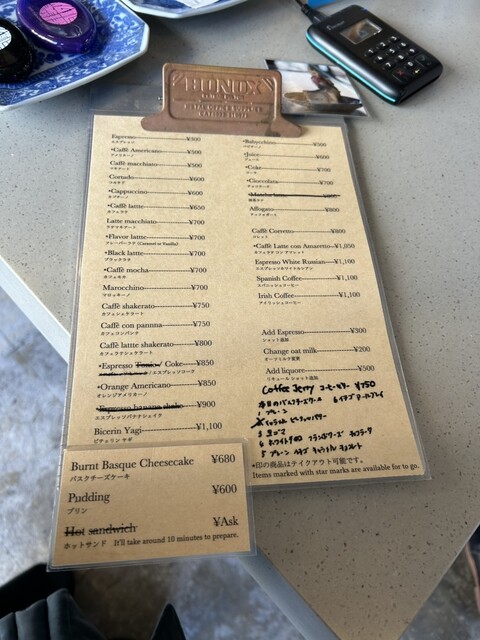 Espresso ¥300
エスプレッソ
•Caffè Americano ¥500
アメリカーノ
Caffè macchiato ¥500
マキアート
Cortado ¥600
コルタド
•Cappuccino ¥600
カプチーノ
•Caffè lattte ¥650
カフェラテ
Latte macchiato ¥700
ラテマキアート
•Flavor lattte ¥700
フレーバーラテ (Caramel or Vanilla)
•Black lattte ¥700
ブラックラテ
•Caffè mocha ¥700
カフェモカ
Marocchino ¥700
マロッキーノ
Caffè shakerato ¥750
カフェシェケラート
Caffè con pannna ¥750
カフェコンパンナ
Caffè lattte shakerato ¥800
カフェラテシェケラート
•Espresso Tonic / Coke ¥850
/エスプレッソコーク
•Orange Americano ¥850
オレンジアメリカーノ
Espresso banana shake ¥900
エスプレッソバナナシェイク
Bicerin Yagi ¥1,100
ビチェリン ヤギ
•Babycchino ¥500
•Juice ¥600
ジュース
•Coke ¥700
コーラ
•Cioccolata ¥700
Affogato ¥800
アフォガート
Caffè Corretto ¥800
•Caffè Latte con Amaretto ¥1,050
カフェラテ コン アマレット
Espresso White Russian ¥1,100
エスプレッソホワイトルシアン
Spanish Coffee ¥1,100
スパニッシュコーヒー
Irish Coffee ¥1,100
アイリッシュコーヒー
Add Espresso ¥300
ショット追加
Change oat milk ¥200
オーツミルク変更
Add liquore ¥500
リキュール ショット追加
Coffee Jerry コーヒーゼリー ¥750
本日のバスクチーズケーキ
1 プレーン
3 黒ゴマ
4 ホワイトチョコ
•印の商品はテイクアウト可能です。
Items marked with star marks are available for to go.
Burnt Basque Cheesecake ¥680
バスクチーズケーキ
Pudding ¥600
プリン
Hot sandwich ¥Ask
ホットサンド It'll take around 10 minutes to prepare.